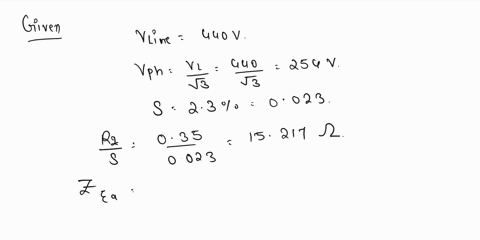 Given
VLine = 440 V.
Vph = VL/√3 = 440/√3 = 254 V.
S = 2.3% = 0.023.
R2/S = 0.35/0.023 = 15.217 Ω.
ZEq =